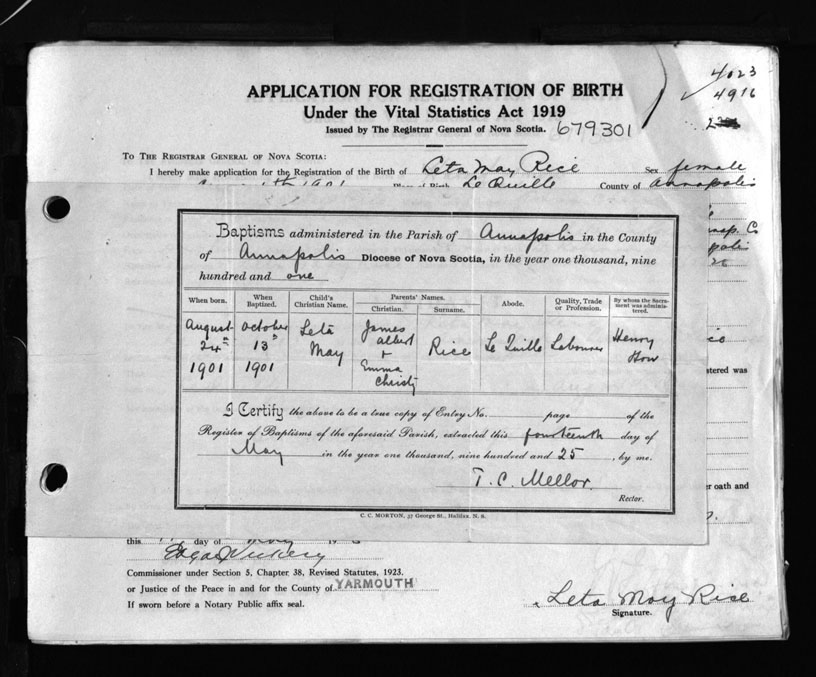 4023
4916
APPLICATION FOR REGISTRATION OF BIRTH
Under the Vital Statistics Act 1919
Issued by The Registrar General of Nova Scotia. 679301
TO THE REGISTRAR GENERAL OF NOVA SCOTIA:
I hereby make application for the Registration of the Birth of Leta May Rice Sex female
1901 Le Quille County of Annapolis
Baptisms administered in the Parish of Annapolis in the County
of Annapolis Diocese of Nova Scotia, in the year one thousand, nine
hundred and one
When born. When Baptized. Child's Christian Name. Parents' Names. Christian. Surname. Abode. Quality, Trade or Profession. By whom the Sacrament was administered.
August 24th 1901 October 13th 1901 Leta May James Albert + Emma Christy Rice Le Quille Labourer Henry How
I Certify the above to be a true copy of Entry No. page of the
Register of Baptisms of the aforesaid Parish, extracted this fourteenth day of
May in the year one thousand, nine hundred and 25, by me.
T. C. Mellor.
Rector.
C. C. MORTON, 37 George St., Halifax, N. S.
stered was
er oath and
this day of May
Edgar Vickery
Commissioner under Section 5, Chapter 38, Revised Statutes, 1923.
or Justice of the Peace in and for the County of YARMOUTH
If sworn before a Notary Public affix seal.
Leta May Rice
Signature.